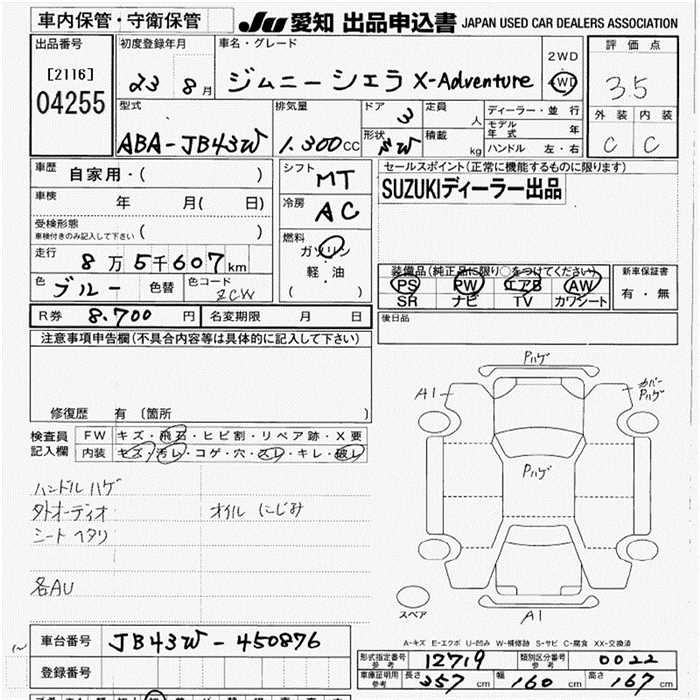 車内保管・守衛保管
JU 愛知 出品申込書 JAPAN USED CAR DEALERS ASSOCIATION
出品番号 初度登録年月 車名・グレード 評価点
[2116] 04255
23 8月 ジムニーシエラ X-Adventure 2WD 4WD 3.5
型式 排気量 ドア 定員 ディーラー・並行 外装 内装
ABA-JB43W 1.300cc 3 人 モデル年式 年 C C
形状 W 積載 kg ハンドル 左・右
車歴 自家用・( ) シフト MT セールスポイント(正常に機能するものに限ります)
SUZUKIディーラー出品
車検 年 月( 日) 冷房 AC
受検形態 車検付きのみ記入して下さい ( )
走行 8万5千607km 燃料 ガソリン 軽・油 ( )
装備品(純正品に限り○をつけてください) 新車保証書
PS PW エアB AW 有・無
SR ナビ TV カワシート
色 ブルー 色替 色コード ZCW
R券 8.700円 名変期限 月 日 後日品
注意事項申告欄(不具合内容等は具体的に記入して下さい)
修復歴 有 (箇所 )
検査員記入欄 FW キズ・飛石・ヒビ割・リペア跡・X要
内装 キズ・汚レ・コゲ・穴・スレ・キレ・破レ
ハンドルハゲ
外オーディオ オイルにじみ
シートヘタリ
各AU
Pハゲ
A1
カバーPハゲ
Pハゲ
スペア
A1
A-キズ E-エクボ U-凹み W-補修跡 S-サビ C-腐食 XX-交換済
車台番号 JB43W-450876
登録番号
形式指定番号 参考 12719 類別区分番号 参考 0022
車庫証明用 参考 長さ 357cm 幅 160cm 高さ 167cm